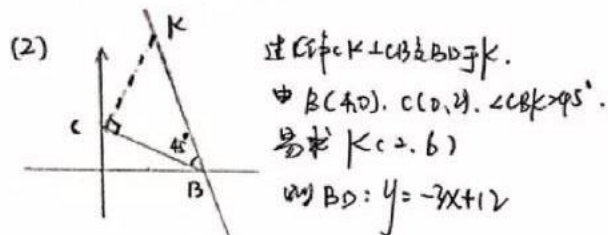 (2)
K
C
45°
B
过C作CK⊥CB交BD于K.
由B(4,0). C(0,2). ∠CBK=45°.
易求K(2,6)
则BD:y=-3x+12